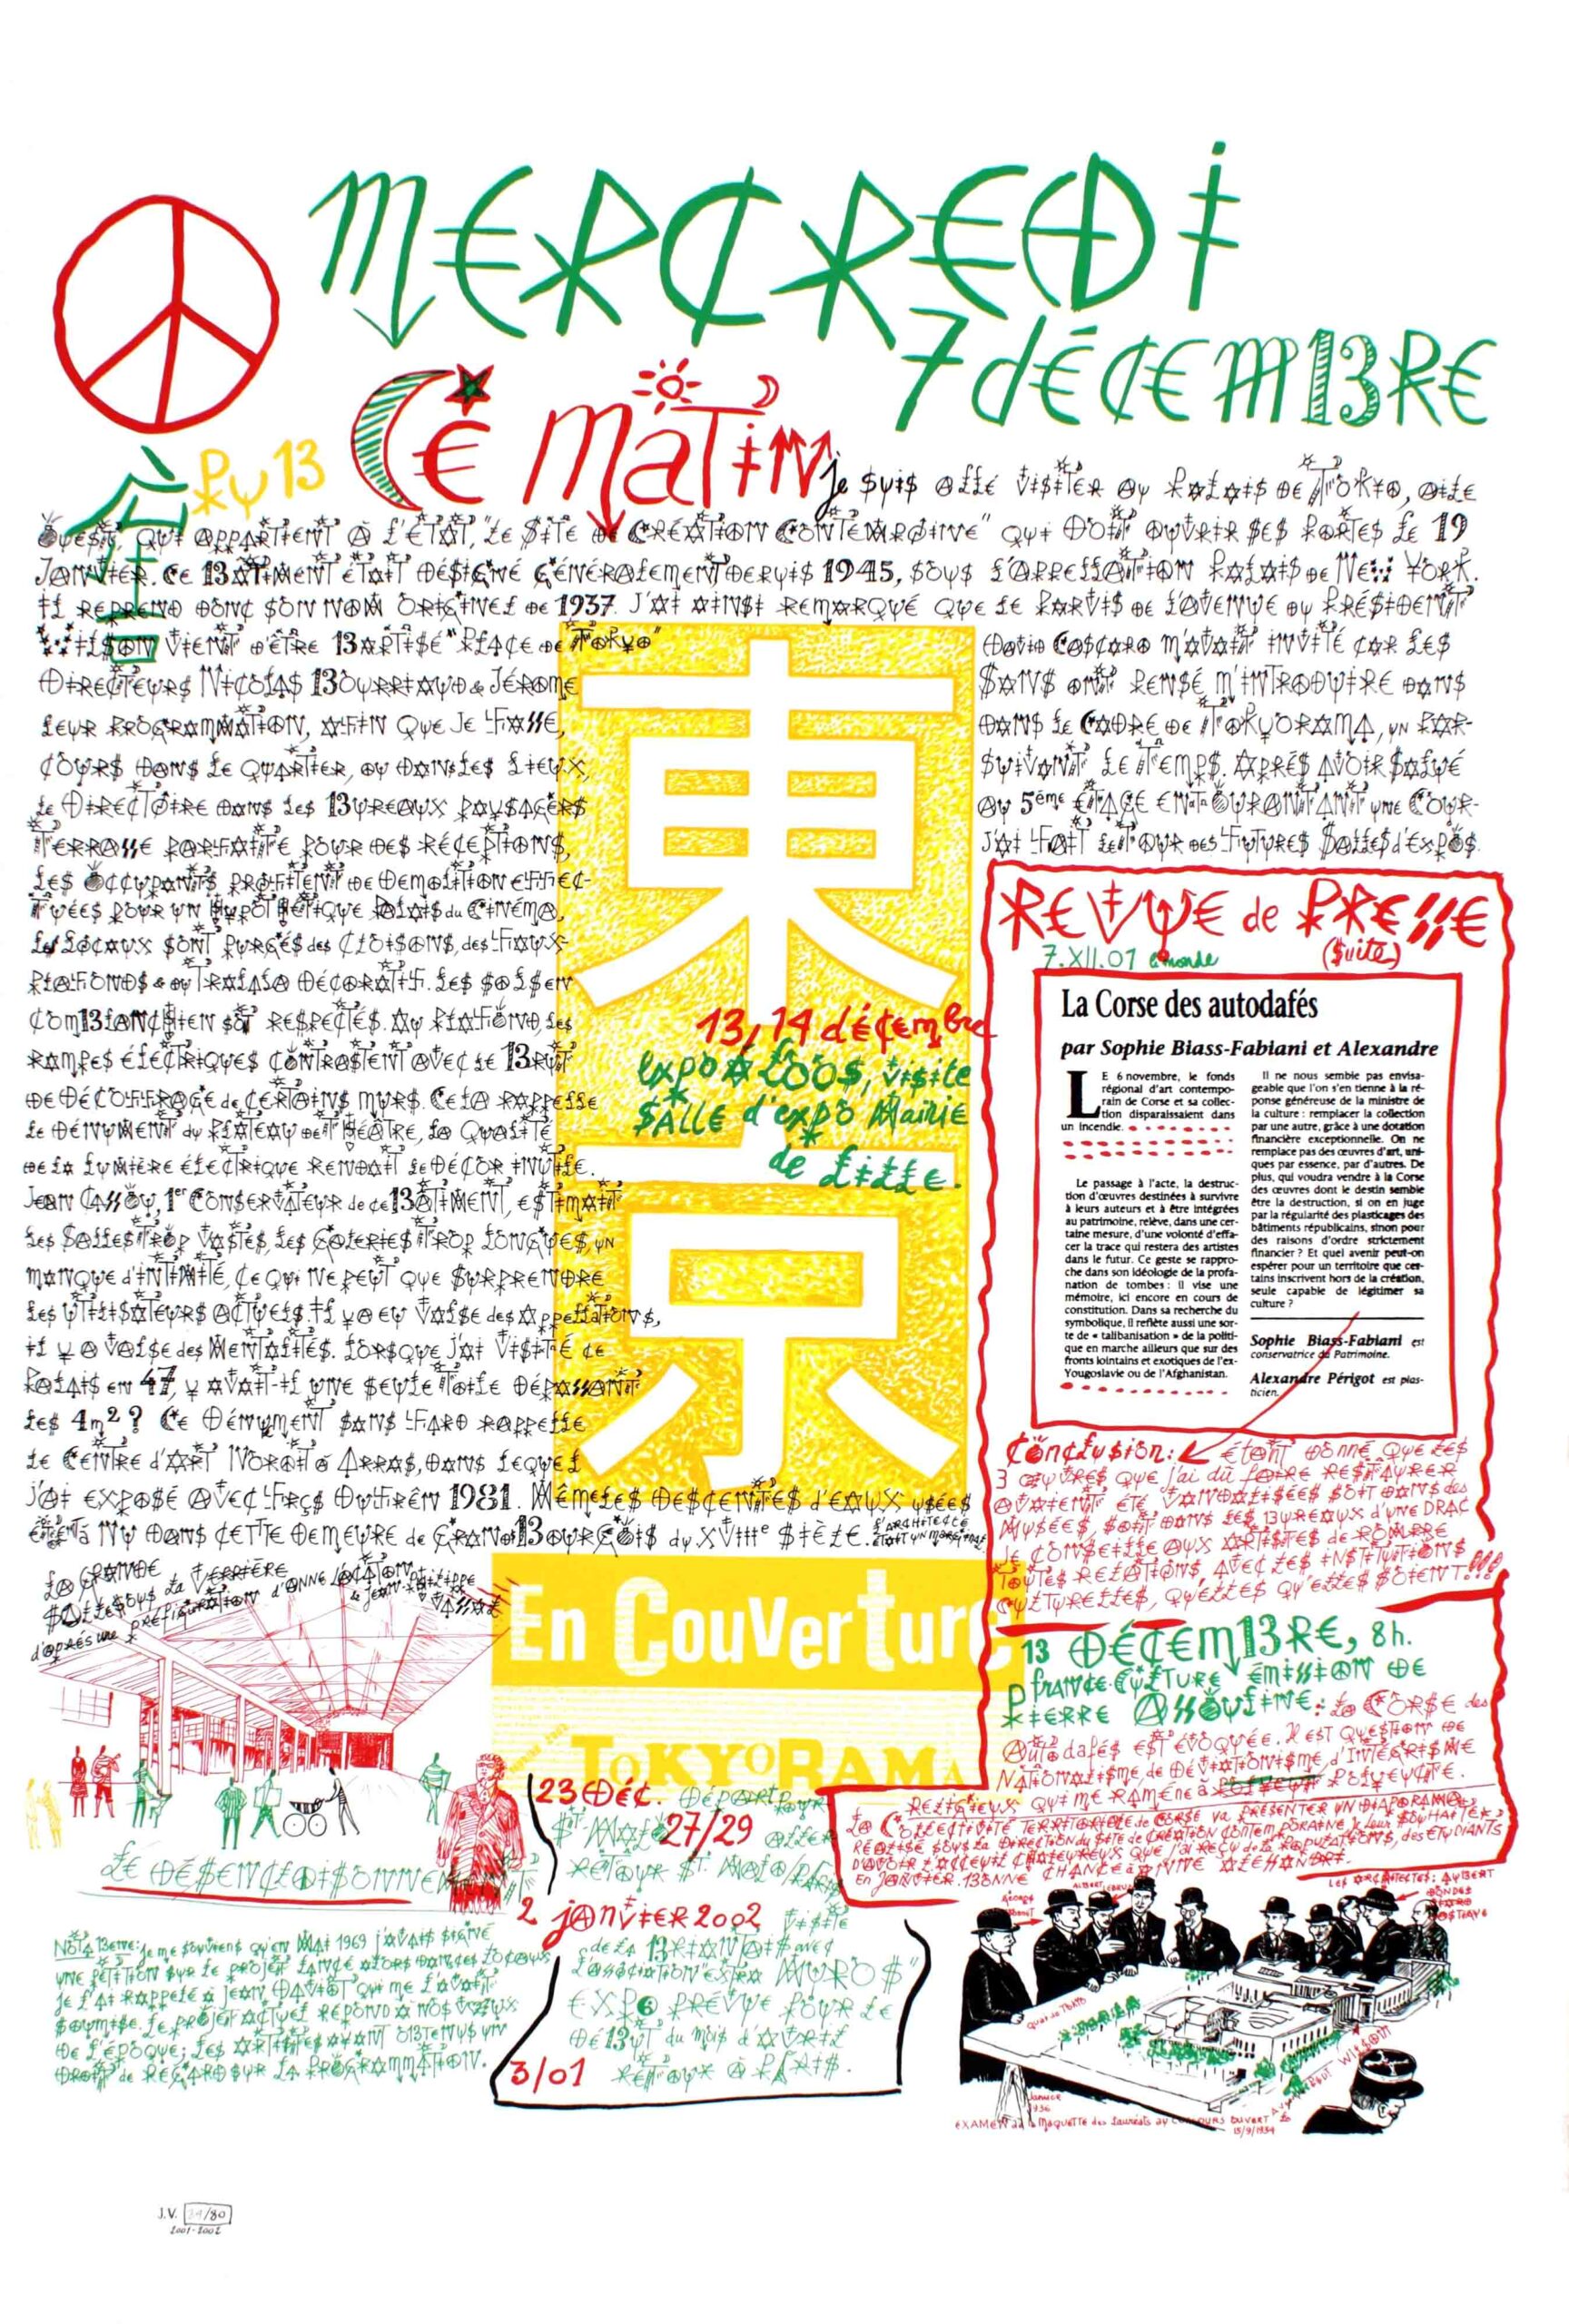 MERCREDI
7 DÉCEMBRE
CE MATIN
PY 13
je suis allé visiter au Palais de Tokyo, aile
Ouest, qui appartient à l'État, "le Site de Création Contemporaine" qui doit ouvrir ses portes le 19
Janvier. Ce 13âtiment était désigné généralement depuis 1945, sous l'appellation Palais de New York.
Il reprend donc son nom originel de 1937. J'ai ainsi remarqué que le parvis de l'avenue du Président
Wilson vient d'être 13aptisé "Place de Tokyo"
David Cascaro m'avait invité car les
Directeurs Nicolas 13ourriaud & Jérome
Sans ont pensé m'introduire dans
leur programmation, afin que je fasse,
dans le cadre de Tokyorama, un par-
cours dans le quartier, ou dans les lieux,
suivant le temps. Après avoir salué
le Directoire dans les 13ureaux paysagers
au 5ème étage entourant une Cour-
Terrasse parfaite pour des réceptions,
j'ai fait le tour des futures Salles d'expos.
Les Occupants profitent de demolition effec-
tuées pour un hypothétique Palais du Cinéma,
les locaux sont purgés des cloisons, des faux-
plafonds & du tralala décoratif. Les sols en
com13lanchien sont respectés. Au plafond, les
rampes électriques contrastent avec le 13rut
de décoffrage de certains murs. Cela rappelle
le dénument du plateau de théâtre, la qualité
de la lumière électrique rendait le décor inutile.
Jean Cassou, 1er Conservateur de ce 13âtiment, estimait
les Salles trop vastes, les galeries trop longues, un
manque d'intimité, ce qui ne peut que surprendre
les utilisateurs actuels. Il y a eu valse des appellations,
il y a valse des mentalités. Lorsque j'ai visité ce
Palais en 47, y avait-il une seule toile dépassant
les 4m2? Ce dénument sans fard rappelle
le Centre d'art Noroit à Arras, dans lequel
j'ai exposé avec Firçs Dufrêne 1981. Même les descentes d'eaux usées
étent à nu dans cette demeure de Grand 13ourgeois du XVIIIe siècle.
東
京
13, 14 décembre
expo A. Loos, visite
Salle d'expo Mairie
de Lille.
REVUE de PRESSE
(Suite)
7.XII.01 le monde
La Corse des autodafés
par Sophie Biass-Fabiani et Alexandre
LE 6 novembre, le fonds
régional d'art contempo-
rain de Corse et sa collec-
tion disparaissaient dans
un incendie.
Le passage à l'acte, la destruc-
tion d'œuvres destinées à survivre
à leurs auteurs et à être intégrées
au patrimoine, relève, dans une cer-
taine mesure, d'une volonté d'effa-
cer la trace qui restera des artistes
dans le futur. Ce geste se rappro-
che dans son idéologie de la profa-
nation de tombes : il vise une
mémoire, ici encore en cours de
constitution. Dans sa recherche du
symbolique, il reflète aussi une sor-
te de « talibanisation » de la politi-
que en marche ailleurs que sur des
fronts lointains et exotiques de l'ex-
Yougoslavie ou de l'Afghanistan.
Il ne nous semble pas envisa-
geable que l'on s'en tienne à la ré-
ponse généreuse de la ministre de
la culture : remplacer la collection
par une autre, grâce à une dotation
financière exceptionnelle. On ne
remplace pas des œuvres d'art, uni-
ques par essence, par d'autres. De
plus, qui voudra vendre à la Corse
des œuvres dont le destin semble
être la destruction, si on en juge
par la régularité des plasticages des
bâtiments républicains, sinon pour
des raisons d'ordre strictement
financier ? Et quel avenir peut-on
espérer pour un territoire que cer-
tains inscrivent hors de la création,
seule capable de légitimer sa
culture ?
Sophie Biass-Fabiani est
conservatrice du Patrimoine.
Alexandre Périgot est plas-
ticien.
Conclusion: étant donné que les
3 œuvres que j'ai dû faire restaurer
avaient été vandalisées soit dans des
Musées, soit dans les 13ureaux d'une DRAC
Je conseille aux artistes de rompre
toutes relations, avec les institutions
culturelles, quelles qu'elles soient!!!
13 DÉCEM13RE, 8h.
France Culture émission de
Pierre Assouline: La Corse des
Autodafés est évoquée. Il est question de
Nationalisme, de déviationisme, d'intégrisme
religieux qui me ramène à Polyeucte.
La Collectivité territoriale de Corse va présenter un diaporama
réalisé sous la direction du Site de Création Contemporaine. Je leur souhaite
d'avoir l'accueil chaleureux que j'ai reçu de la population, des étudiants
En Janvier. 13onne chance à
En Couverture
TOKYORAMA
La Grande
Salle sous la verrière
d'après une préfiguration d'Anne Lacaton
& Jean-Philippe
Vassal
LE DÉSENCLOISONNEMENT
Nota 13ene: je me souviens qu'en Mai 1969 j'avais signé
une pétition sur le projet lancé alors dans ces locaux
Je l'ai rappelé à Jean qui me l'avait
soumise. Le projet actuel répond à nos vœux
de l'époque; les artistes ayant o13tenus un
droit de regard sur la programmation.
23 Déc. Départ pour
St. Malo 27/29 aller
retour St. Malo/
2 janvier 2002 visite
de la 13riantais avec
l'association "Extra Muros"
Expo prévue pour le
dé13ut du mois d'avril
3/01 retour à Paris.
Les architectes: Aubert
Dondel
Viard
Dastugue
Albert Lebrun
Quai de Tokyo
Wilson
Janvier
1936
EXAMEN de la Maquette des lauréats au concours ouvert le
15/9/1934
J.V. /80
2001-2002